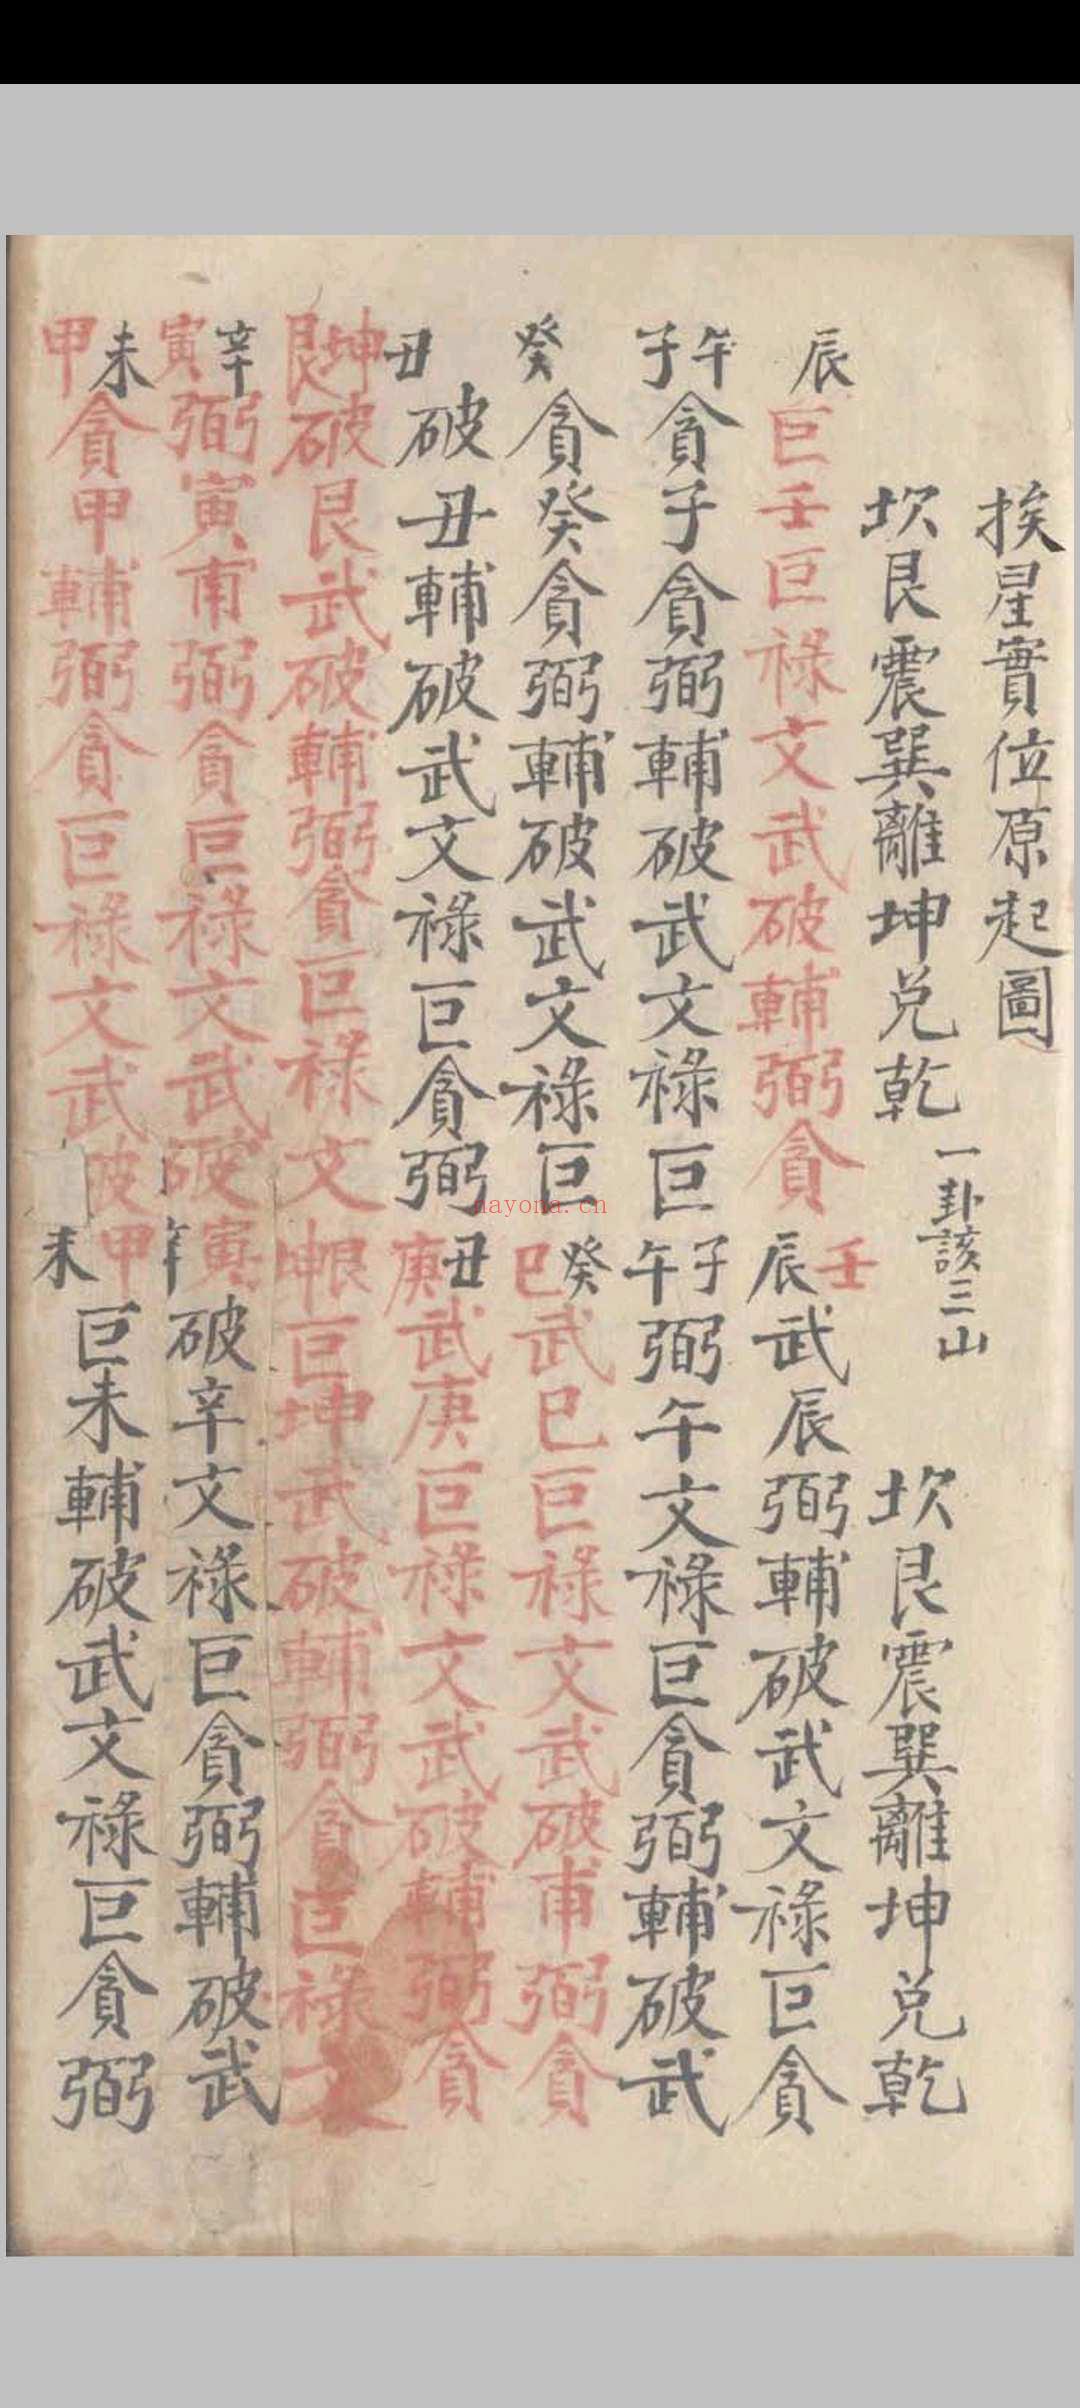 挨星實位原起圖
坎艮震巽離坤兌乾 一卦該三山 坎艮震巽離坤兌乾
辰 巨壬巨祿文武破輔弼貪 辰壬 武辰弼輔破武文祿巨貪
子午 貪子貪弼輔破武文祿巨 午子 弼午文祿巨貪弼輔破武
癸 貪癸貪弼輔破武文祿巨 巳癸 武巳巨祿文武破甫弼貪
丑 破丑輔破武文祿巨貪弼 庚丑 武庚巨祿文武破輔弼貪
艮坤 破艮武破輔弼貪巨祿文 坤艮 巨坤武破輔弼貪巨祿文
寅辛 弼寅甫弼貪巨祿文武破 辛寅 破辛文祿巨貪弼輔破武
甲未 貪甲輔弼貪巨祿文武破 未甲 巨未輔破武文祿巨貪弼
nayona.cn